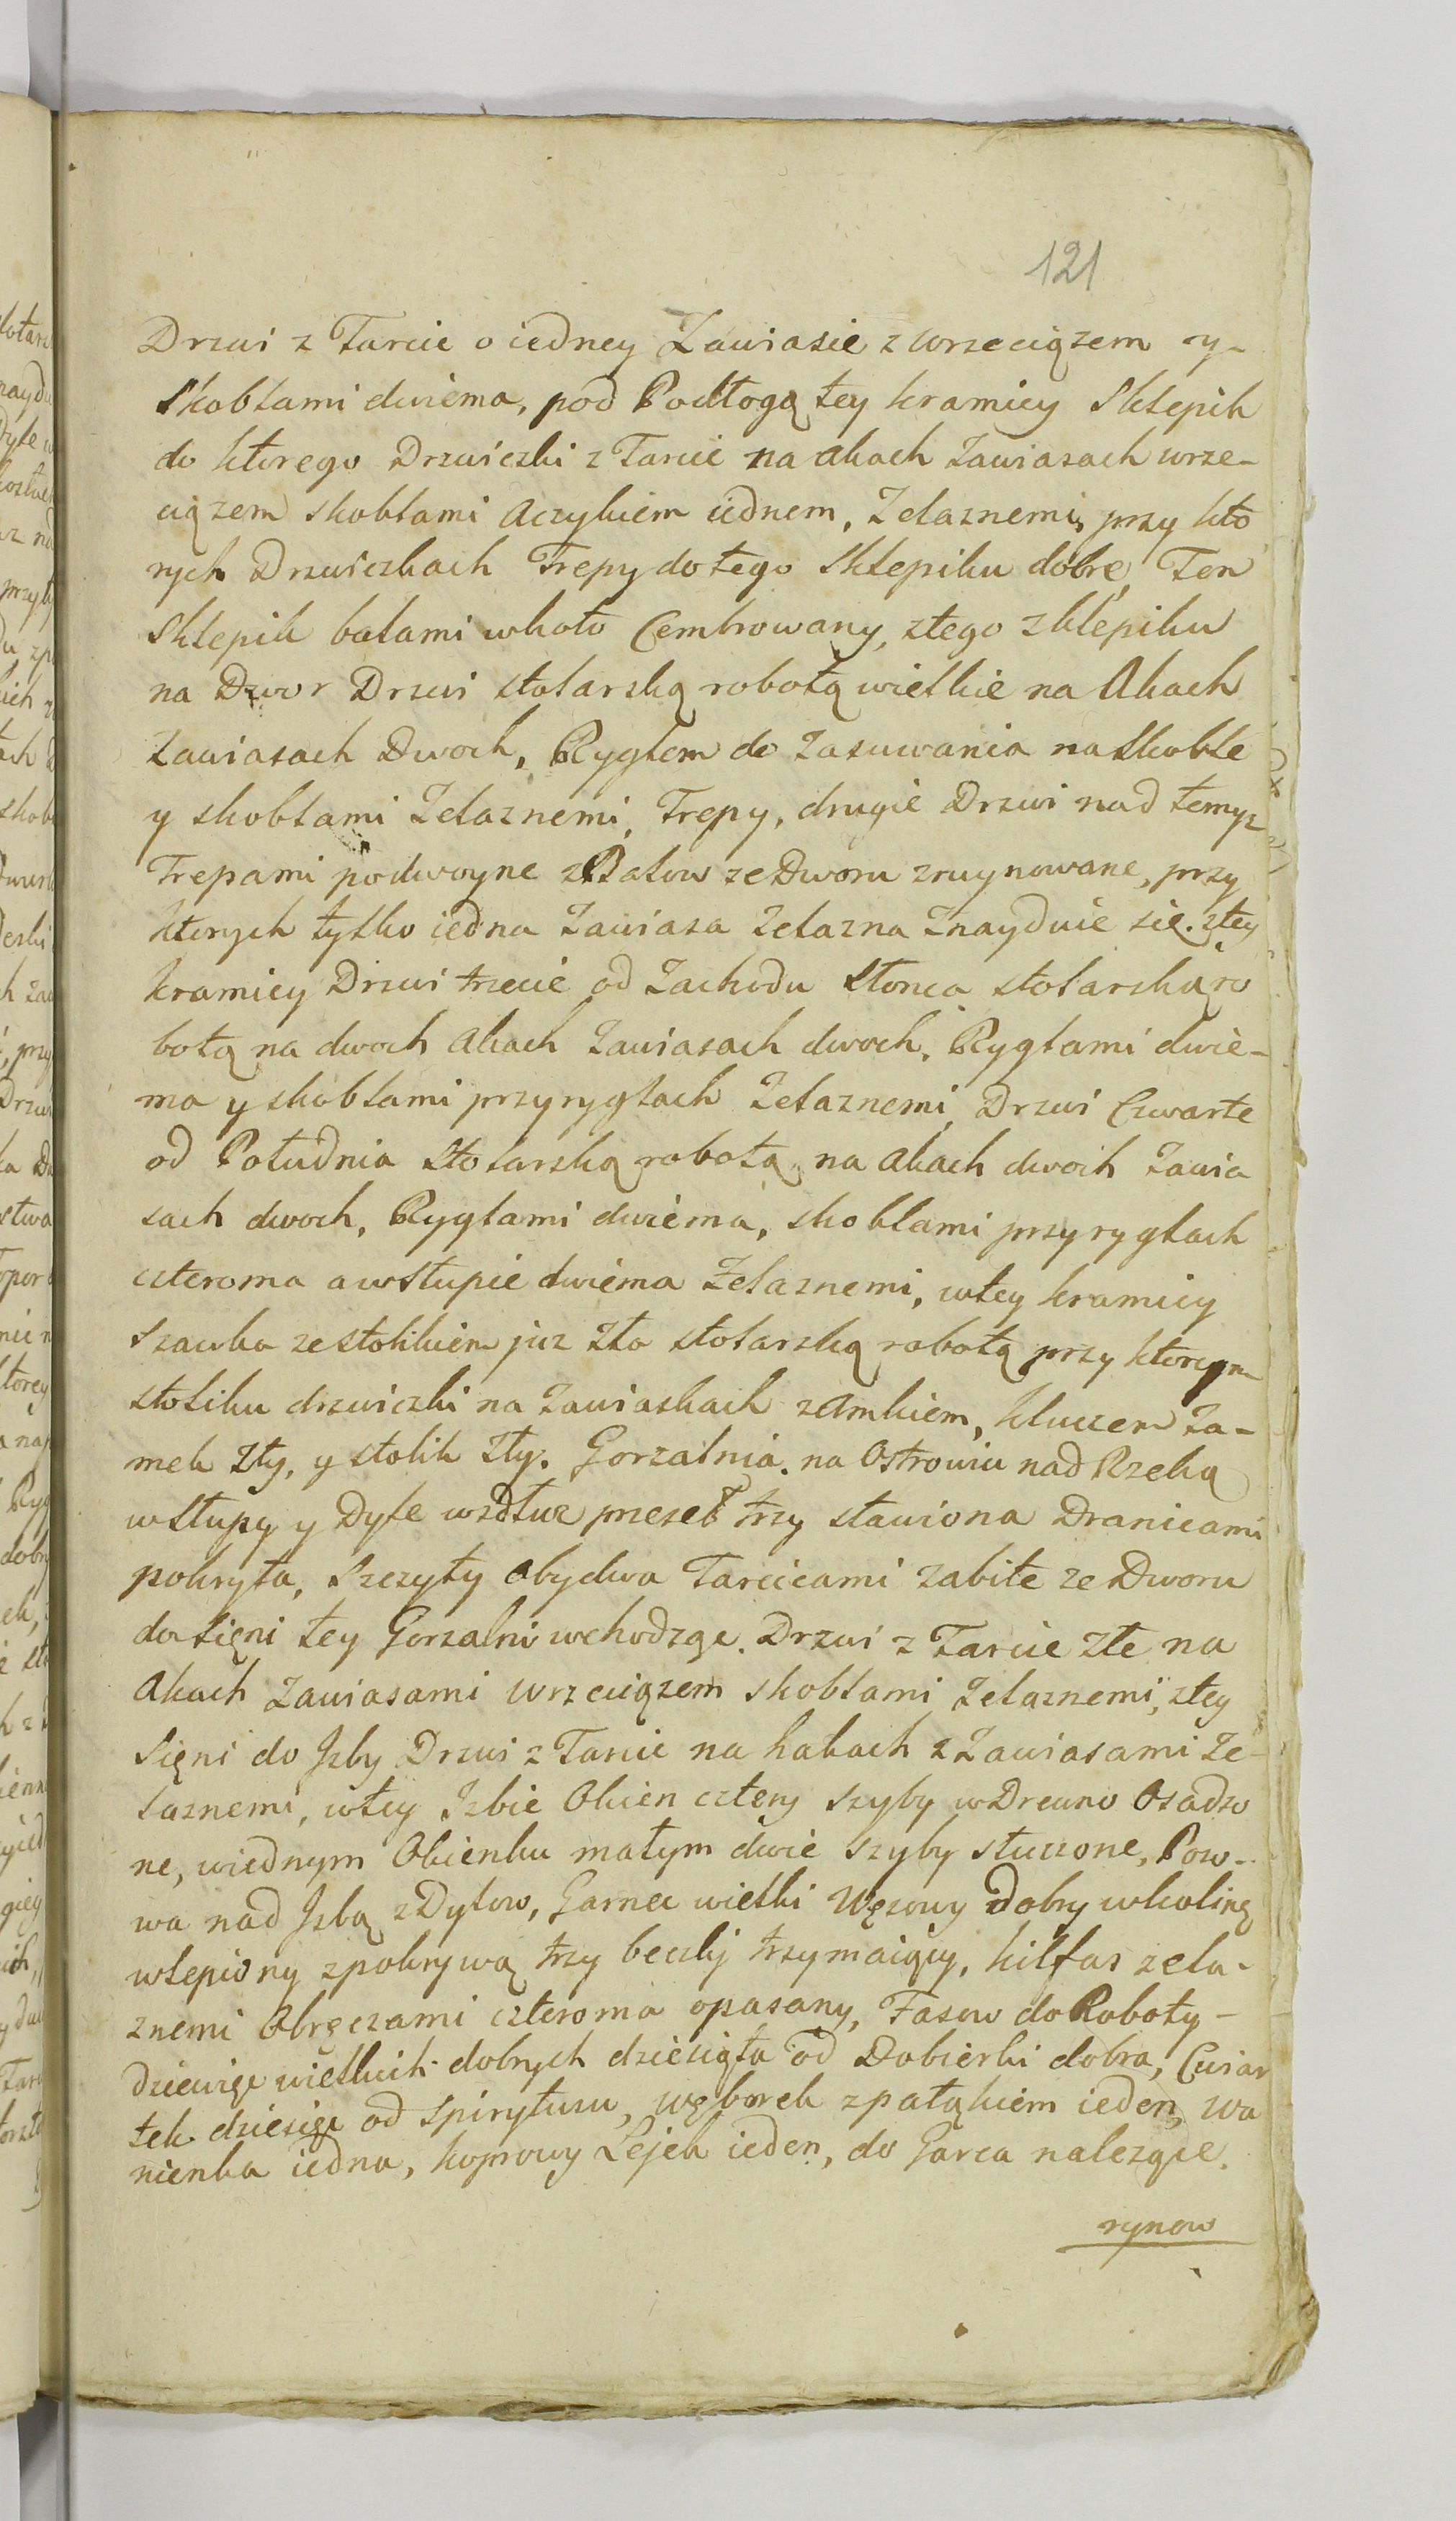 121
Drzwi z Tarcic o iedney Zawiasie z wrzeciązem y
Skoblami dwiema, pod Podłogą tey kramicy Sklepik
do ktorego Drzwiczki z Tarcic na akach Zawiasach wrze-
ciązem skoblami aczykiem iednem, Zelaznemi, przy kto
rych Drzwiczkach Trepy do tego Sklepiku dobre, Ten
Sklepik balami wkoło Cembrowany, ztego zklepiku
na Dwor Drzwi stolarską robotą wielkie na Akach
Zawiasach Dwoch, Ryglem do zasuwania na Skoble
y skoblami Zelaznemi, Trepy, drugie Drzwi nad temyz
Trepami podwoyne z Balow ze Dworu zruynowane, przy
ktorych tylko iedna Zawiasa Zelazna Znayduie się. ztey
kramicy Drzwi trzecie od Zachodu Słonca stolarską ro
botą na dwoch akach Zawiasach dwoch, Ryglami dwie-
ma y skoblami przy ryglach Zelaznemi, Drzwi Czwarte
od Południa Stolarską robotą na akach dwoch Zawia
sach dwoch, Ryglami dwiema, skoblami przy ryglach
czteroma a wsłupie dwiema Zelaznemi, wtey kramicy
Szawka ze stolikiem juz zła stolarską robotą przy ktorym
stoliku drzwiczki na Zawiaskach zamkiem, kluczem Za-
mek Zły, y stolik Zły. Gorzalnia na Ostrowiu nad Rzeką
wsłupy y Dyle wzdłuz przeseł trzy stawiona Dranicami
pokryta, Szczyty obydwa Tarcicami zabite ze Dworu
do Sięni tey Gorzalni wchodząc. Drzwi z Tarcic złe na
Akach Zawiasami wrzeciązem skoblami Zelaznemi, ztey
Sięni do Jzby Drzwi z Tarcic na hakach z Zawiasami Ze-
laznemi, wtey Izbie Okien cztery szyby w Drewno Osadzo
ne, wiednym Okienku małym dwie szyby stuczone, Pow-
wa nad Jzbą z Dylow, Garnec wielki Węzowy dobry wkolinę
wlepiony zpokrywą trzy beczki trzymaiący, kilfas zela-
znemi Obręczami czteroma opasany, Fasow do Roboty-
dziewięc wielkich dobrych dziesiąta od Dobierki dobra, Cwiar
tek dziesięc od Spirytusu, węborek zpałąkiem ieden, wa
nienka iedna, koprowy Lejek ieden, do Garca nalezące.
rynow